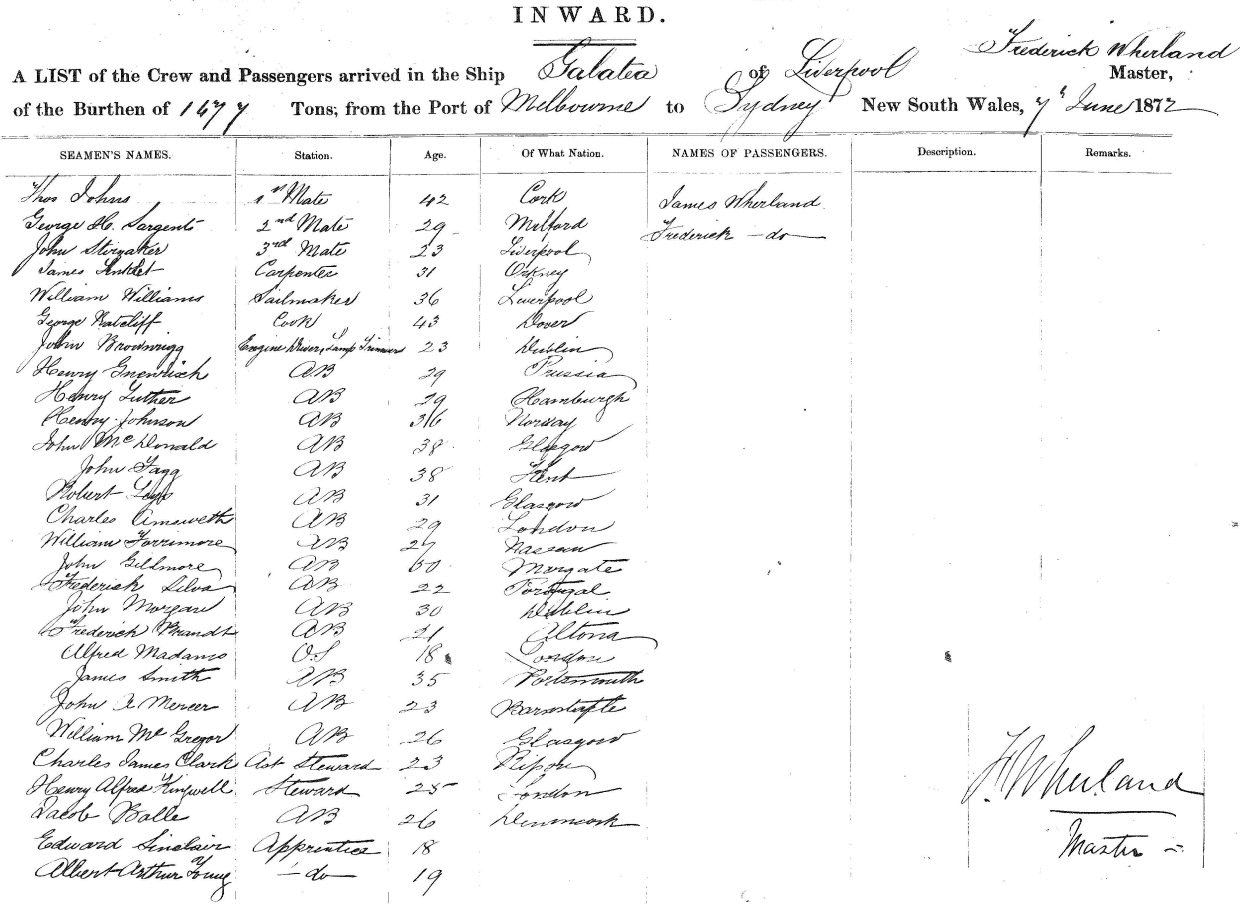 INWARD.
Frederick Wherland
A LIST of the Crew and Passengers arrived in the Ship Galatea of Liverpool Master,
of the Burthen of 1477 Tons, from the Port of Melbourne to Sydney New South Wales, 7th June 1872
SEAMEN'S NAMES. Station. Age. Of What Nation. NAMES OF PASSENGERS. Description. Remarks.
Thos Johns 1st Mate 42 Cork James Wherland
George H. Sargent 2nd Mate 29 Milford Frederick - do -
John Stirzaker 3rd Mate 23 Liverpool
James Carpenter 31 Orkney
William Williams Sailmaker 36 Liverpool
George Ratcliff Cook 43 Dover
John Brownrigg Engine Driver, Lamp Trimmer 23 Dublin
Henry AB 29 Prussia
Henry Luther AB 29 Hamburgh
Henry Johnson AB 36 Norway
John McDonald AB 38 Glasgow
John Fagg AB 38 Kent
Robert AB 31 Glasgow
Charles AB 29 London
William AB 27 Nassau
John Gillmore AB Margate
Frederick Silva AB 22 Portugal
John Morgan AB 30 Dublin
Frederick Brandt AB 21 Altona
Alfred Madams O.S 18 London
James Smith AB 35 Portsmouth
John A Mercer AB 23 Barnstaple
William McGregor AB 26 Glasgow
Charles James Clark Ast Steward 23 Ripon
Henry Alfred Kingwell Steward 25 London
Jacob Balle AB 26
Edward Sinclair Apprentice 18
Albert Arthur Young - do - 19
F. Wherland
Master